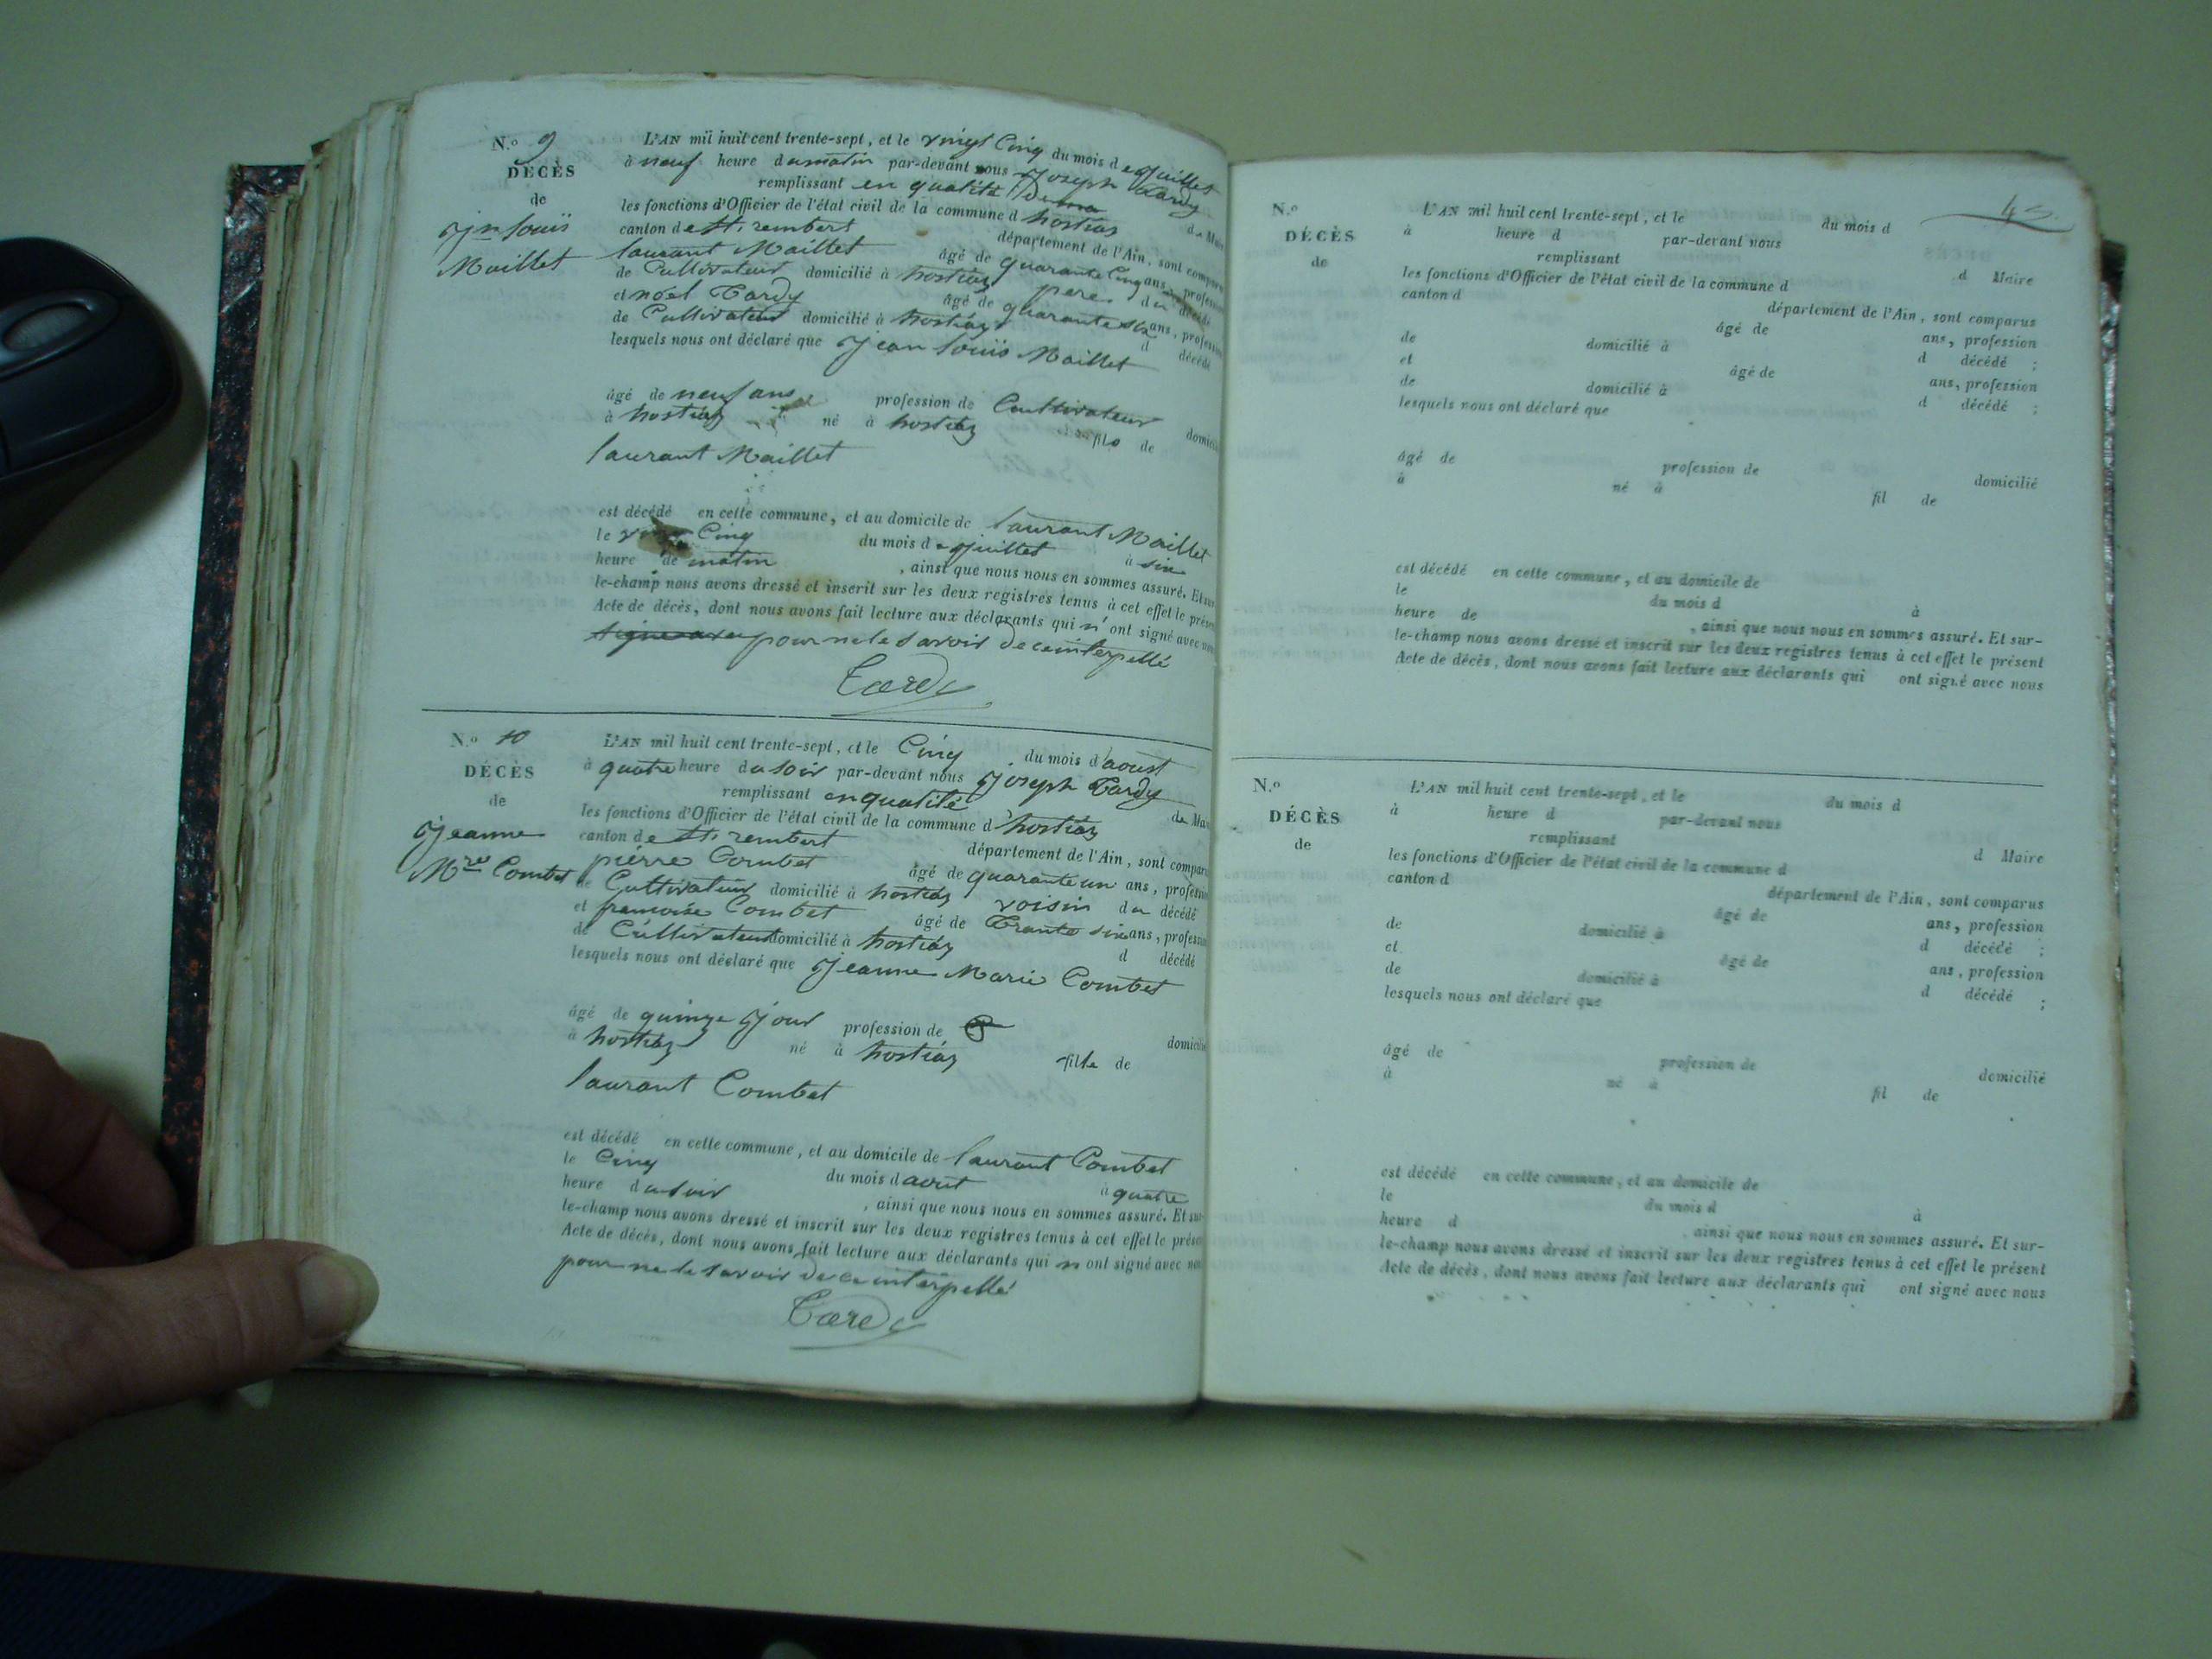 N.o 9
DÉCÈS
de
Jn louïs
Maillet
L'AN mil huit cent trente-sept, et le vingt Cinq du mois de Juillet
à neuf heure du matin par-devant nous Joseph Tardy
remplissant en qualité de Maire
les fonctions d'Officier de l'état civil de la commune d hostiaz
canton de St. rembert département de l'Ain, sont comparus
laurant Maillet âgé de quarante Cinq ans, profession
de Cultivateur domicilié à hostiaz pere du décédé
et noël Tardy âgé de quarante six ans, profession
de Cultivateur domicilié à hostiaz d décédé
lesquels nous ont déclaré que Jean louïs Maillet
âgé de neuf ans profession de Cultivateur domicilié
à hostiaz né à hostiaz fils de
laurant Maillet
est décédé en cette commune, et au domicile de laurant Maillet
le Cinq du mois de Juillet à six
heure de matin, ainsi que nous nous en sommes assuré. Et sur-
le-champ nous avons dressé et inscrit sur les deux registres tenus à cet effet le présent
Acte de décès, dont nous avons fait lecture aux déclarants qui n'ont signé avec nous
pour ne le savoir de ce interpellé
Tardy
N.o 10
DÉCÈS
de
Jeanne
Mrie Combet
L'AN mil huit cent trente-sept, et le Cinq du mois d'aoust
à quatre heure du soir par-devant nous Joseph Tardy
remplissant en qualité de Maire
les fonctions d'Officier de l'état civil de la commune d'hostiaz
canton de St. rembert département de l'Ain, sont comparus
pierre Combet âgé de quarante un ans, profession
de Cultivateur domicilié à hostiaz voisin du décédé
et francoise Combet âgé de Trante six ans, profession
de Cultivateur domicilié à hostiaz d décédé
lesquels nous ont déclaré que Jeanne Marie Combet
âgé de quinze Jour profession de domicilié
à hostiaz né à hostiaz fille de
laurant Combet
est décédé en cette commune, et au domicile de laurant Combet
le Cinq du mois d aout à quatre
heure du soir, ainsi que nous nous en sommes assuré. Et sur-
le-champ nous avons dressé et inscrit sur les deux registres tenus à cet effet le présent
Acte de décès, dont nous avons fait lecture aux déclarants qui n ont signé avec nous
pour ne le savoir de ce interpellé
Tardy
43.
N.o
DÉCÈS
de
L'AN mil huit cent trente-sept, et le du mois d
à heure d par-devant nous
remplissant d Maire
les fonctions d'Officier de l'état civil de la commune d
canton d département de l'Ain, sont comparus
âgé de ans, profession
de domicilié à d décédé ;
et âgé de ans, profession
de domicilié à d décédé ;
lesquels nous ont déclaré que
âgé de profession de domicilié
à né à fil de
est décédé en cette commune, et au domicile de
le du mois d à
heure de , ainsi que nous nous en sommes assuré. Et sur-
le-champ nous avons dressé et inscrit sur les deux registres tenus à cet effet le présent
Acte de décès, dont nous avons fait lecture aux déclarants qui ont signé avec nous
N.o
DÉCÈS
de
L'AN mil huit cent trente-sept, et le du mois d
à heure d par-devant nous
remplissant d Maire
les fonctions d'Officier de l'état civil de la commune d
canton d département de l'Ain, sont comparus
âgé de ans, profession
de domicilié à d décédé ;
et âgé de ans, profession
de domicilié à d décédé ;
lesquels nous ont déclaré que
âgé de profession de domicilié
à né à fil de
est décédé en cette commune, et au domicile de
le du mois d à
heure d , ainsi que nous nous en sommes assuré. Et sur-
le-champ nous avons dressé et inscrit sur les deux registres tenus à cet effet le présent
Acte de décès, dont nous avons fait lecture aux déclarants qui ont signé avec nous